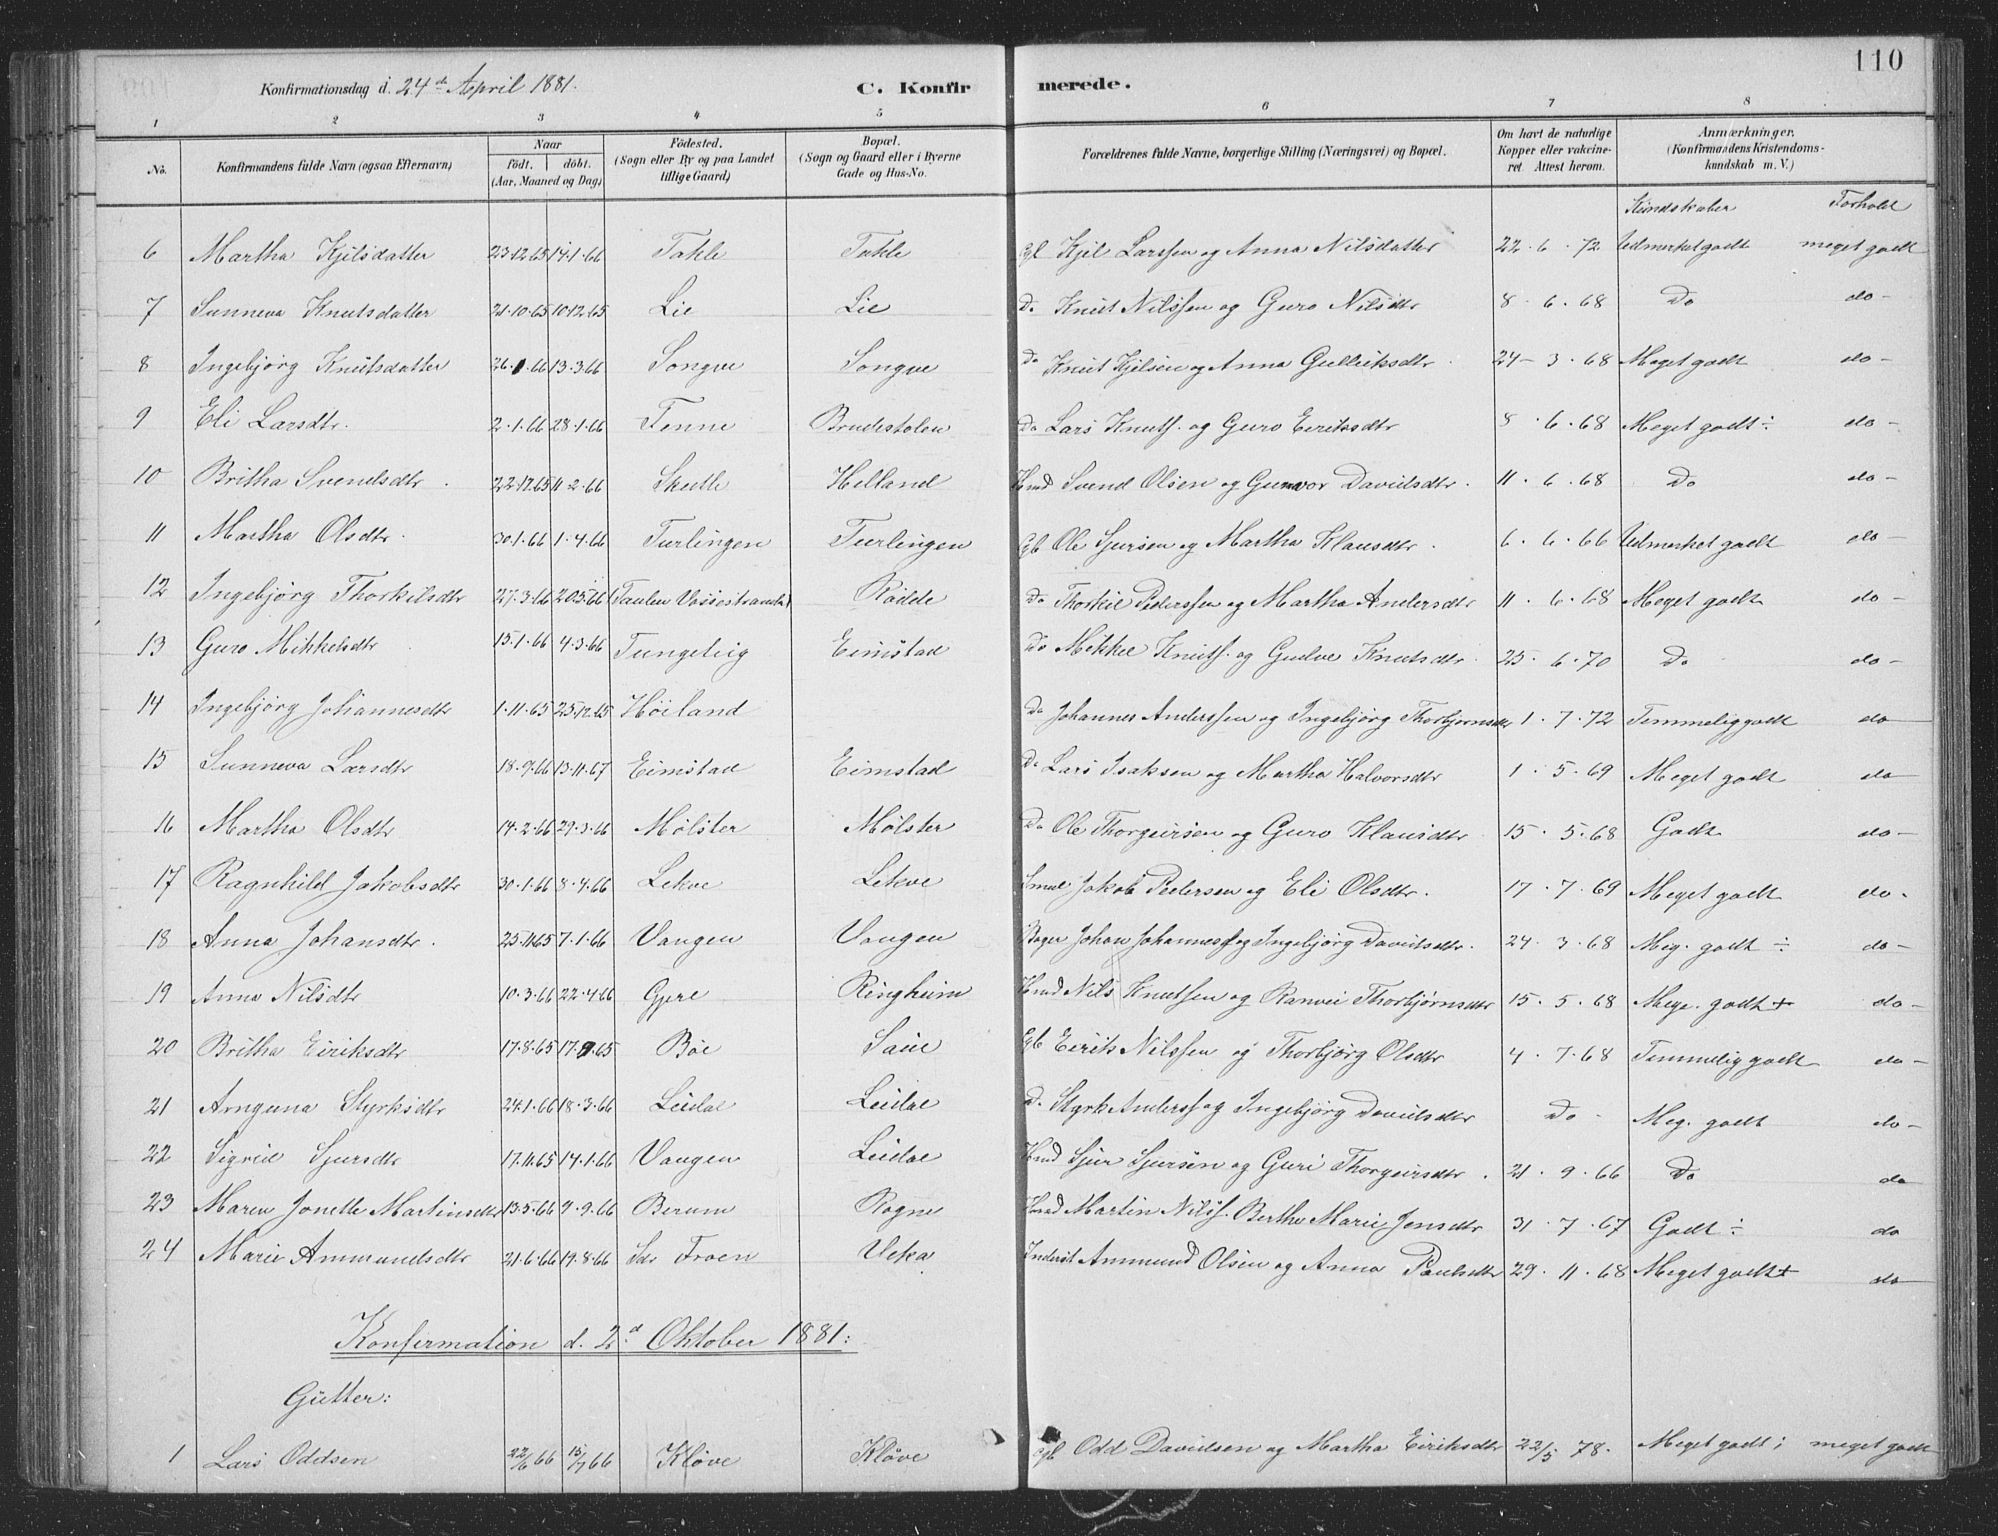 110
Konfirmationsdag d. 24de April 1881. C. Konfirmerede.
1 2 3 4 5 6 7 8
No. Konfirmandens fulde Navn (ogsaa Efternavn) Naar födt. döbt. (Aar, Maaned og Dag) Födested. (Sogn eller By og paa Landet tillige Gaard) Bopæl. (Sogn og Gaard eller i Byerne Gade og Hus-No. Forældrenes fulde Navne, borgerlige Stilling (Næringsvei) og Bopæl. Om havt de naturlige Kopper eller vakcineret. Attest herom. Anmærkninger. (Konfirmandens Kristendomskundskab m. V.)
Kundskaber Forhold
6 Martha Kjilsdatter 23·12·65 14·1·66 Takle Takle Gb Kjil Larssen og Anna Nilsdatter 22·6·72 Udmerket godt meget godt
7 Sunneva Knutsdatter 21·10·65 10·12·65 Lie Lie Do Knut Nilssen og Guro Nilsdtr 8·6·68 Do do
8 Ingebjørg Knutsdatter 26·1·66 13·3·66 Songve Songve Do Knut Kjilsen og Anna Gulleiksdtr 24·3·68 Meget godt do
9 Eli Larsdtr. 2·1·66 28·1·66 Tenne Brudestolen Do Lars Knuts. og Guro Eiriksdtr 8·6·68 Meget godt ÷ do
10 Britha Svendsdtr 22·12·65 11·2·66 Skutle Helland Hmd Svend Olsen og Gunvor Davidsdtr. 11·6·68 Do do
11 Martha Olsdtr. 30·1·66 1·4·66 Turlingen Turlingen Gb Ole Sjursen og Martha Klausdtr. 6·6·66 Udmerket godt do
12 Ingebjørg Thorkilsdtr 27·3·66 20·5·66 (Taulen Vossestranden) Rødde Do Thorkil Pederssen og Martha Andersdtr 11·6·68 Meget godt do
13 Guro Mikkelsdtr 15·1·66 4·3·66 Tungetvig Eimstad Do Mikkel Knuts. og Gudve Knutsdtr. 25·6·70 Do do
14 Ingebjørg Johannesdtr 1·11·65 25·12·65 Høiland Do Johannes Anderssen og Ingebjørg Thorbjørnsdtr 1·7·72 Temmelig godt do
15 Sunneva Larsdtr 18·9·66 13·11·67 Eimstad Eimstad Do Lars Isaksen og Martha Halvorsdtr 1·5·69 Meget godt do
16 Martha Olsdtr 14·2·66 29·3·66 Mølster Mølster Do Ole Thorgeirsen og Guro Klausdtr 15·5·68 Godt do
17 Ragnhild Jakobsdtr 30·1·66 8·4·66 Lekve Lekve Jakob Pedersen og Eli Olsdtr. 17·7·69 Meget godt do
18 Anna Johansdtr. 25·11·65 7·1·66 Vangen Vangen Bager Johan Johanness. og Ingebjørg Davidsdtr. 24·3·68 Meg. godt ÷ do
19 Anna Nilsdtr 10·3·66 22·4·66 Gjere Ringheim Hmd Nils Knutsen og Ranvei Thorbjørnsdtr 15·5·68 Mege. godt + do
20 Britha Eiriksdtr 17·8·65 17·9·65 Bøe Saue Gb Eirik Nilssen og Thorbjørg Olsdtr 4·7·68 Temmelig godt do
21 Arnguna Styrksdtr 24·1·66 18·3·66 Leidal Leidal D. Styrk Anderss. og Ingebjørg Davidsdtr Do Meg. godt do
22 Sigrid Sjursdtr 17·11·65 14·1·66 Vangen Leidal Hmd Sjur Sjursen og Guri Thorgeirsdtr. 21·9·66 Do do
23 Maren Jonette Martinsdtr 13·5·66 9·9·66 Berum Rogne Hmd Martin Nils. Berthe Marie Jensdtr 31·7·67 Godt ÷ do
24 Marie Ammundsdtr 21·6·66 19·8·66 Sdr Froen Ueka Inderst Ammund Olsen og Anna Paulsdtr 29·11·68 Meget godt + do
Konfirmation d. 2d Oktober 1881:
Gutter:
1 Lars Oddsen 22/6 66 15/7 66 Kløve Kløve Gb Odd Davidsen og Martha Eiriksdtr 22/5 78. Meget godt; meget godt